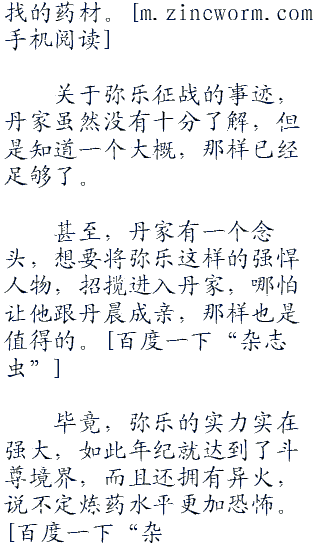 找的药材。[m.zincworm.com
手机阅读]
关于弥乐征战的事迹，
丹家虽然没有十分了解，但
是知道一个大概，那样已经
足够了。
甚至，丹家有一个念
头，想要将弥乐这样的强悍
人物，招揽进入丹家，哪怕
让他跟丹晨成亲，那样也是
值得的。[百度一下“杂志
虫”]
毕竟，弥乐的实力实在
强大，如此年纪就达到了斗
尊境界，而且还拥有异火，
说不定炼药水平更加恐怖。
[百度一下“杂